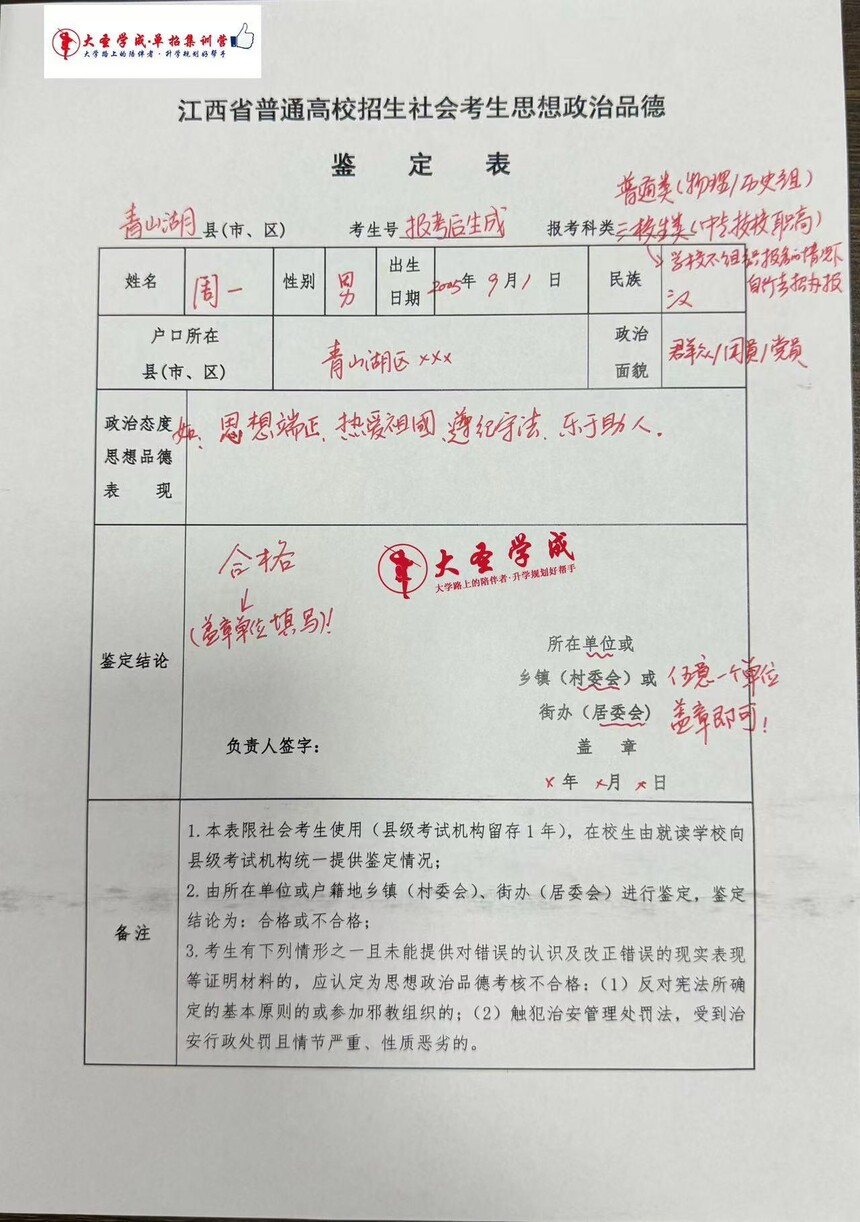 大圣学成·单招集训营
大学路上的陪伴者·升学规划好帮手
江西省普通高校招生社会考生思想政治品德
鉴 定 表
普通类(物理/历史组)
青山湖 县(市、区) 考生号 报考后生成 报考科类 三校生类(中专技校职高)
学校不组织报名的情况下
自行去招办报
姓名 周一 性别 男 出生日期 2005年 9月1日 民族 汉
户口所在
县(市、区) 青山湖区 xxx 政治面貌 群众/团员/党员
政治态度
思想品德
表 现
如: 思想端正、热爱祖國、遵纪守法、乐于助人.
鉴定结论
合格
(盖章单位填写)!
大圣学成
大学路上的陪伴者·升学规划好帮手
所在单位或
乡镇(村委会)或 任意一个单位
街办(居委会) 盖章即可!
负责人签字: 盖 章
x年 x月 x日
备注
1.本表限社会考生使用(县级考试机构留存1年),在校生由就读学校向
县级考试机构统一提供鉴定情况;
2.由所在单位或户籍地乡镇(村委会)、街办(居委会)进行鉴定,鉴定
结论为:合格或不合格;
3.考生有下列情形之一且未能提供对错误的认识及改正错误的现实表现
等证明材料的,应认定为思想政治品德考核不合格:(1)反对宪法所确
定的基本原则的或参加邪教组织的;(2)触犯治安管理处罚法,受到治
安行政处罚且情节严重、性质恶劣的。